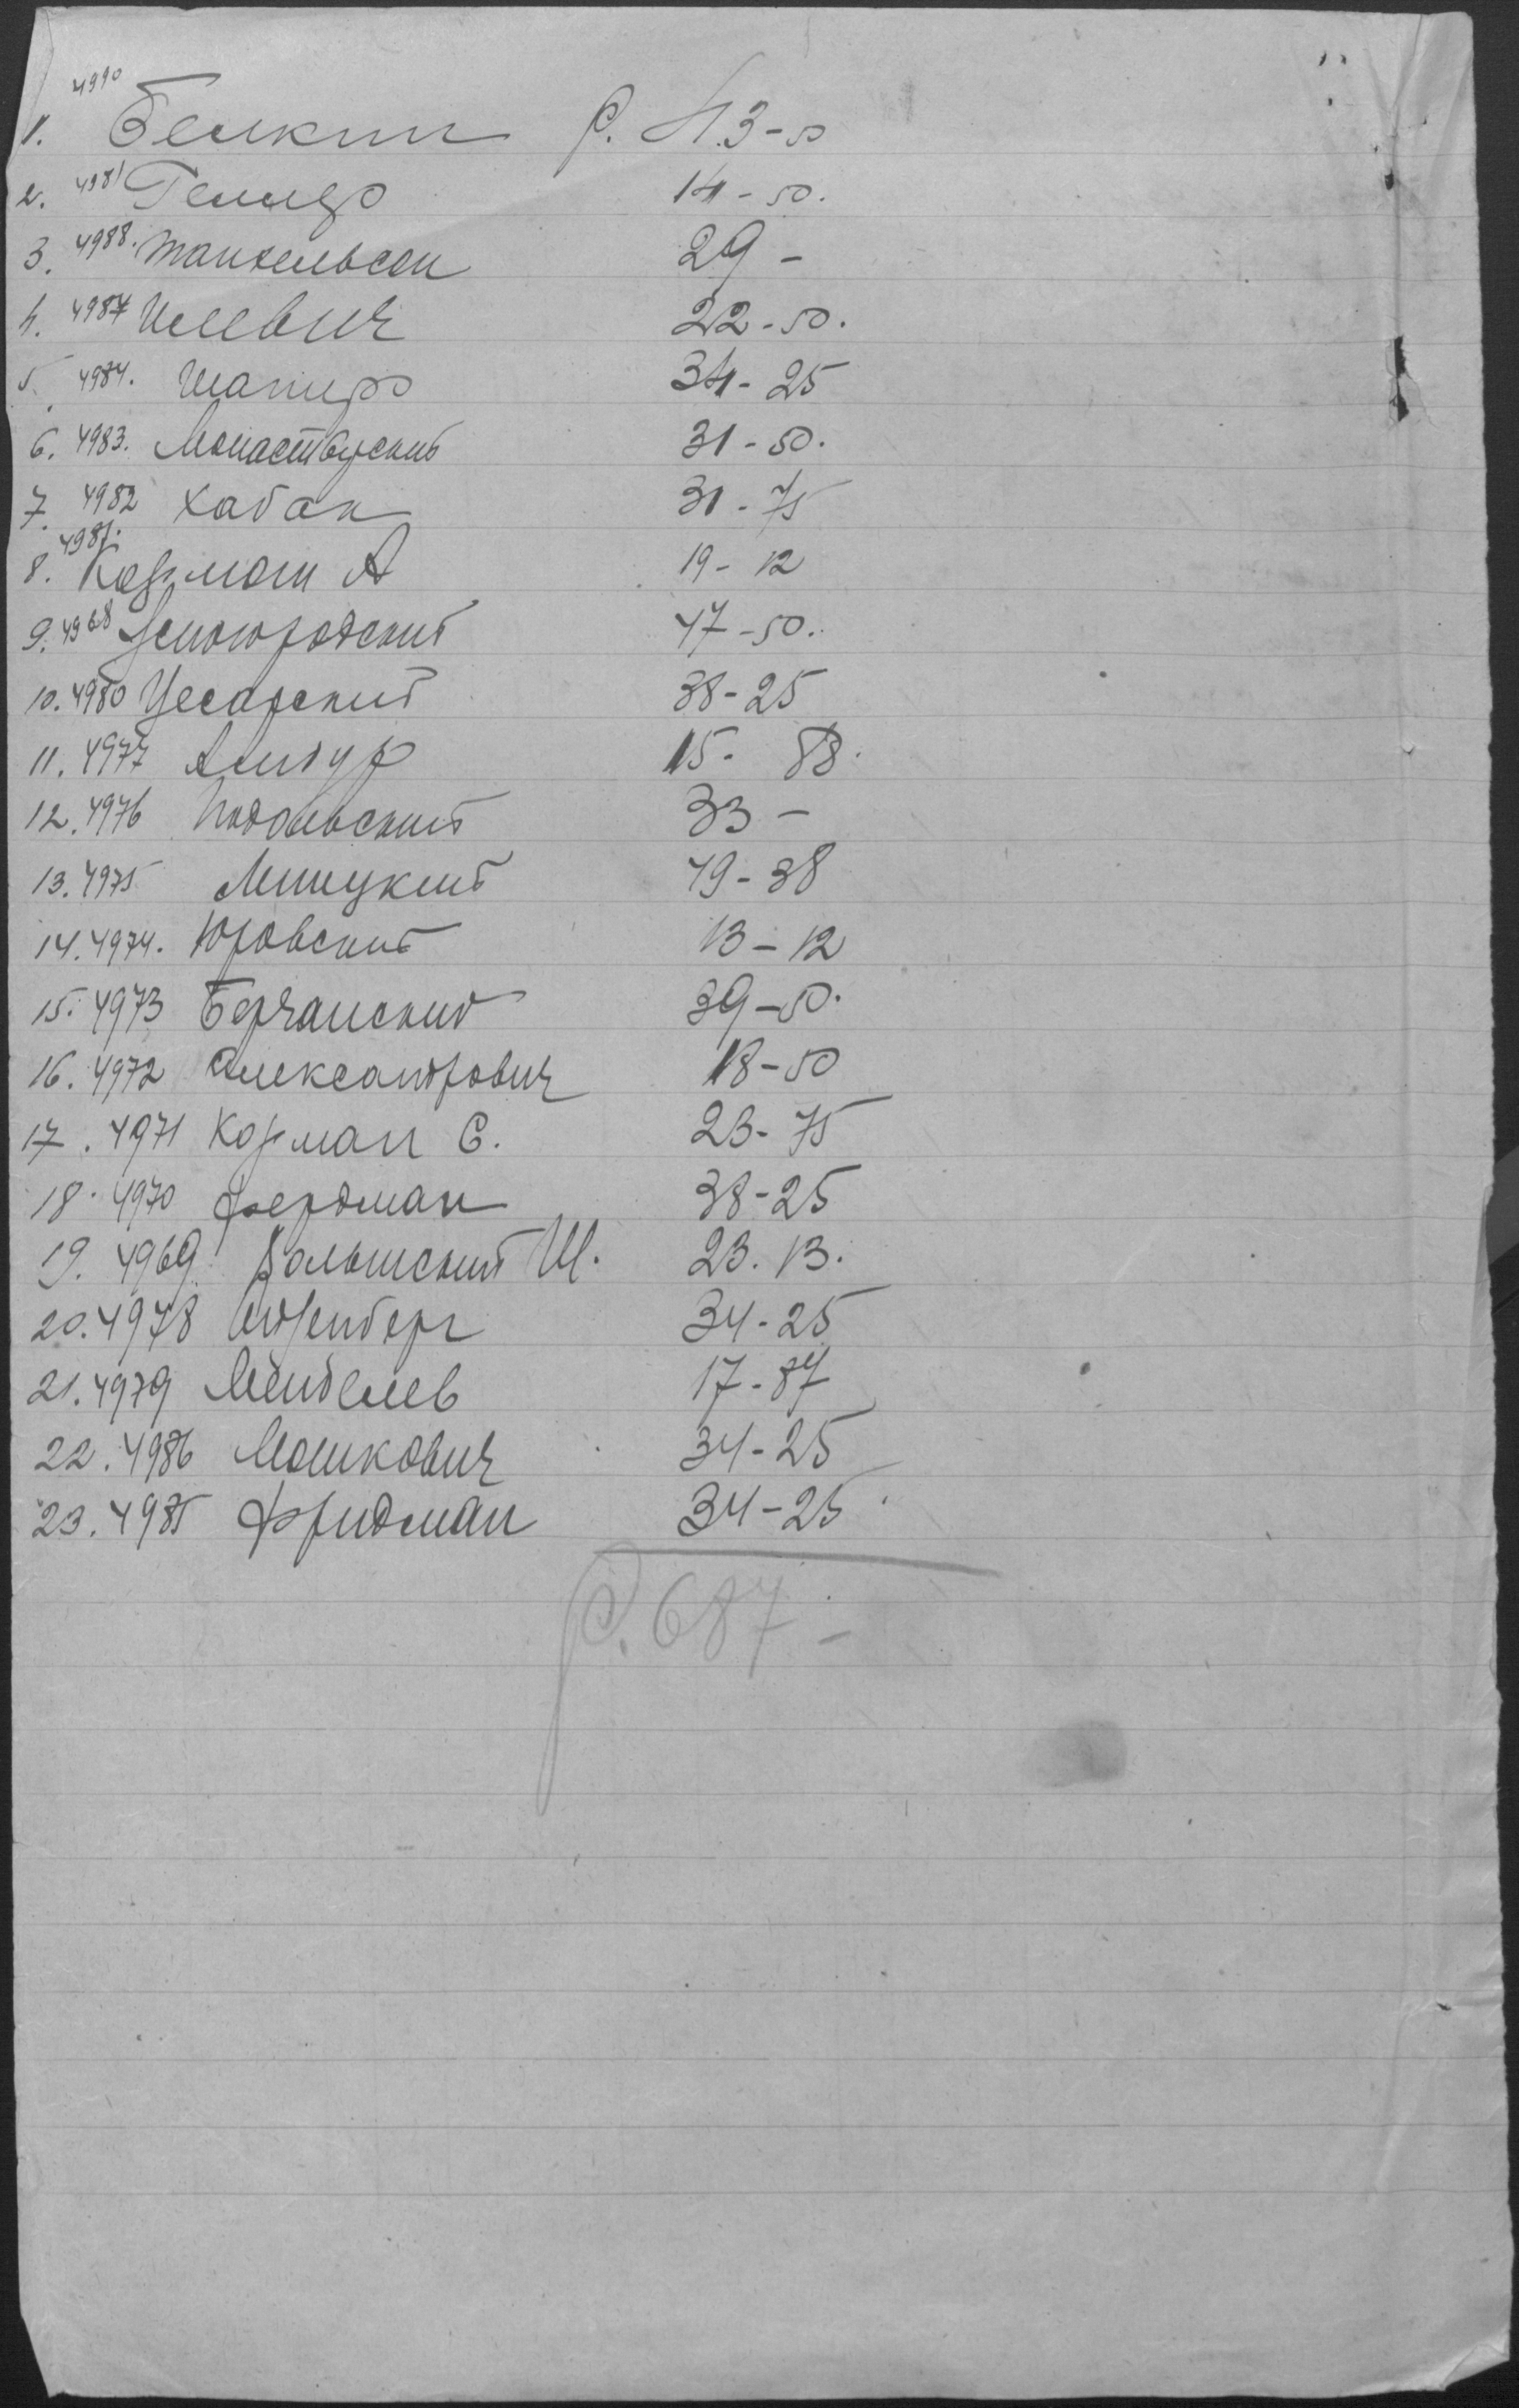 1. 4990 Белкин Р. 43-50
2. 4981 Геллер 14-50.
3. 4988. Мандельсон 29-
4. 4987 Илевич 22-50.
5. 4984. Шапиро 34-25
6. 4983. Монастырский 31-50.
7. 4982 Хабан 31-75
8. 4981. Корман А 19-12
9. 4968 47-50.
10. 4980 Цесарский 38-25
11. 4977 15-88.
12. 4976 Подольский 33-
13. 4975 Липецкий 49-38
14. 4974. Юровский 13-12
15. 4973 Берчанский 39-50.
16. 4972 Александрович 18-50
17. 4971 Корман С. 23-75
18. 4970 Фердман 38-25
19. 4969 Вольшский Ш. 23.13.
20. 4978 34-25
21. 4979 Менделев 17-87
22. 4986 Мошкович 34-25
23. 4985 Фридман 34-25
Р. 687-